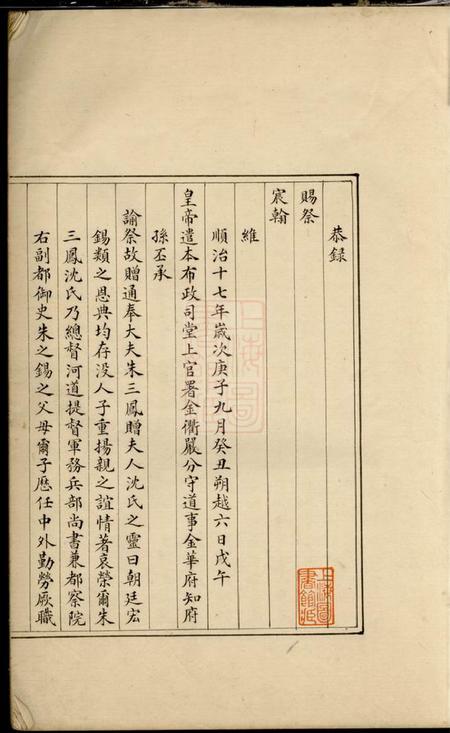 恭録
賜祭
宸翰
維
順治十七年歲次庚子九月癸丑朔越六日戊午
皇帝遣本布政司堂上官署金衢嚴分守道事金華府知府
孫丕承
諭祭故贈通奉大夫朱三鳳贈夫人沈氏之靈曰朝廷宏
錫類之恩典均存没人子重揚親之誼情著哀榮爾朱
三鳳沈氏乃總督河道提督軍務兵部尚書兼都察院
右副都御史朱之錫之父母爾子歷任中外勤勞厥職
上海圖書館藏